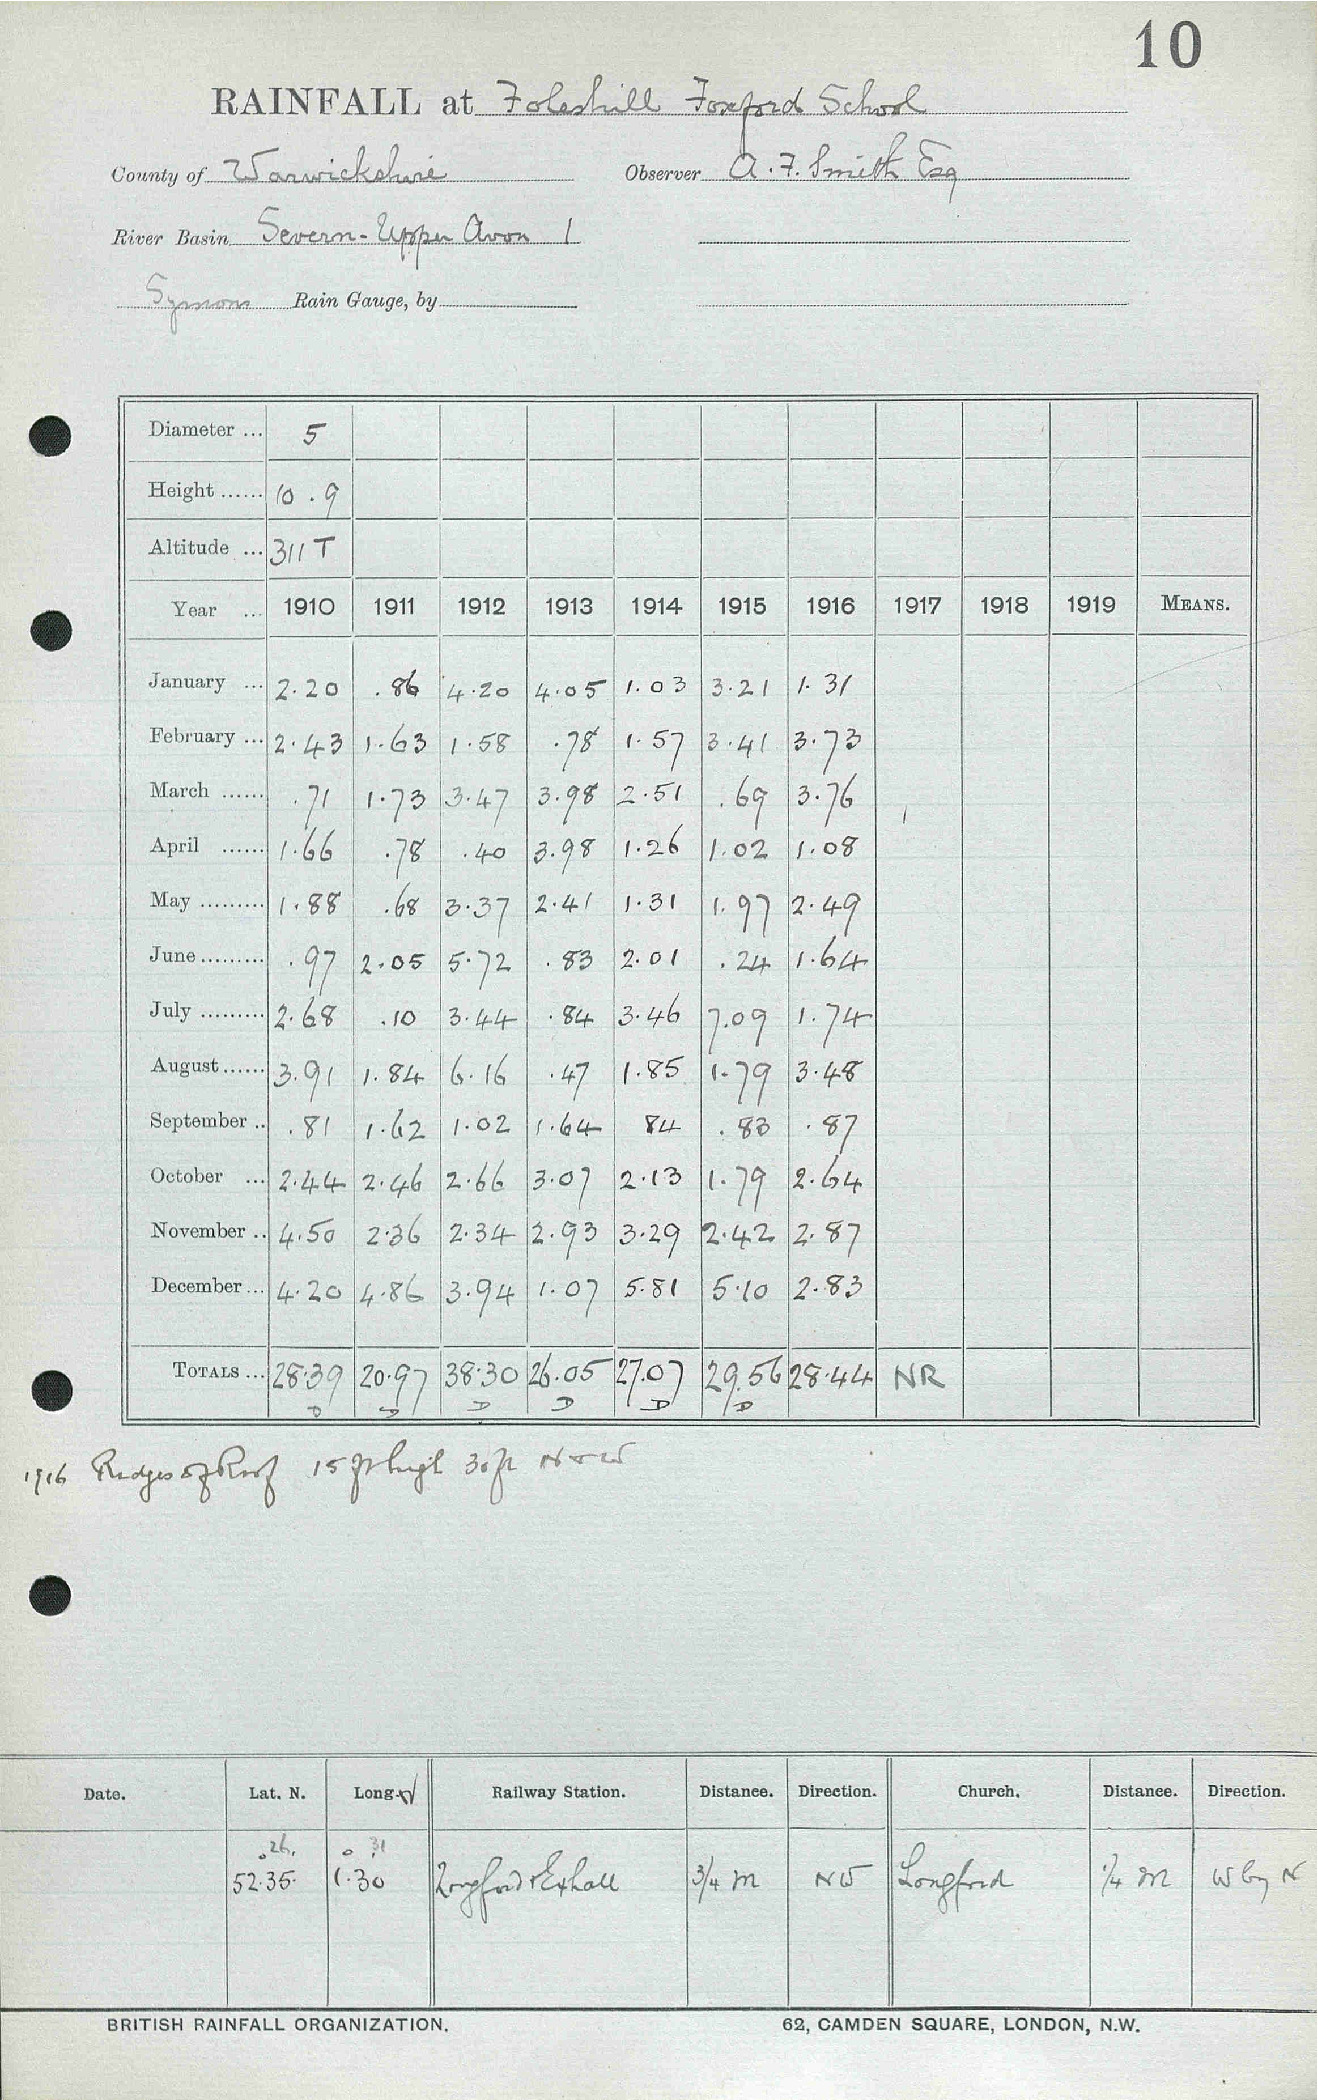 10
RAINFALL at Foleshill Foxford School
County of Warwickshire Observer A. F. Smith Esq
River Basin Severn - Upper Avon 1
Symons Rain Gauge, by
Diameter ... 5
Height ...... 10 . 9
Altitude ... 311 T
Year ... 1910 1911 1912 1913 1914 1915 1916 1917 1918 1919 MEANS.
January ... 2.20 .86 4.20 4.05 1.03 3.21 1.31
February ... 2.43 1.63 1.58 .78 1.57 3.41 3.73
March ...... .71 1.73 3.47 3.98 2.51 .69 3.76
April ...... 1.66 .78 .40 3.98 1.26 1.02 1.08
May ......... 1.88 .68 3.37 2.41 1.31 1.97 2.49
June ......... .97 2.05 5.72 .83 2.01 .24 1.64
July ......... 2.68 .10 3.44 .84 3.46 7.09 1.74
August ...... 3.91 1.84 6.16 .47 1.85 1.79 3.48
September .. .81 1.62 1.02 1.64 84 .83 .87
October ... 2.44 2.46 2.66 3.07 2.13 1.79 2.64
November .. 4.50 2.36 2.34 2.93 3.29 2.42 2.87
December ... 4.20 4.86 3.94 1.07 5.81 5.10 2.83
TOTALS ... 28.39 20.97 38.30 26.05 27.07 29.56 28.44 NR
D D D D D D
1916 Ridges of Roof 15 ft high 30 ft N & W
Date. Lat. N. Long. W Railway Station. Distance. Direction. Church. Distance. Direction.
26. 31
52.35 1.30 Longford & Exhall 3/4 m NW Longford 1/4 m W by N
BRITISH RAINFALL ORGANIZATION. 62, CAMDEN SQUARE, LONDON, N.W.